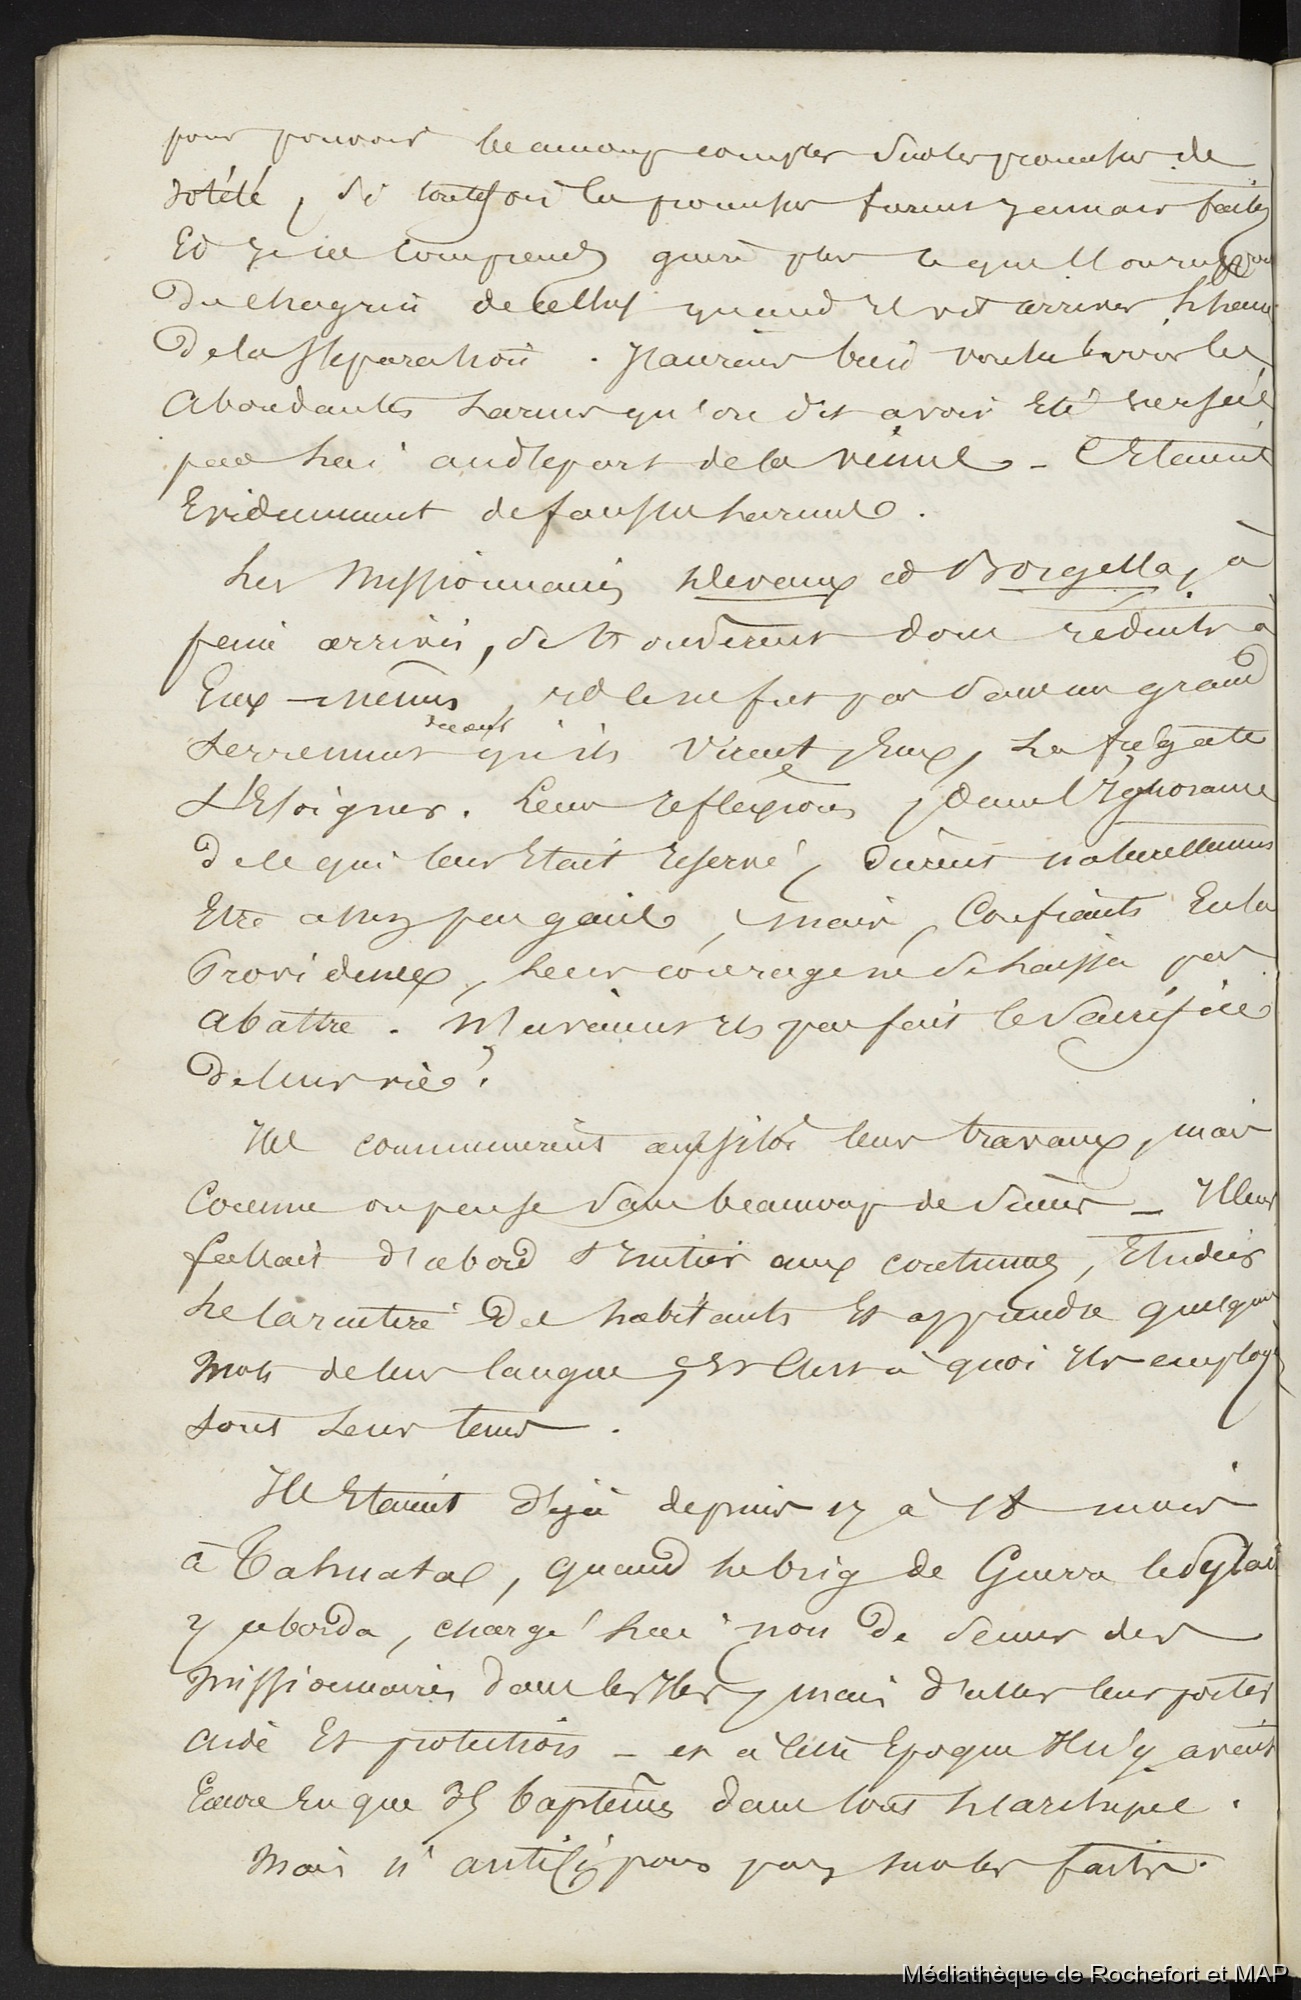 pour pouvoir beaucoup compter sur les promesses de
Iotété, si toutefois les promesses furent jamais faites
Et je ne comprends guère plus ce que l'on rapporte
du chagrin de celui quand il vit arriver l'heure
de la Séparation. J'aurais bien voulu voir les
abondantes larmes qu'on dit avoir été versées
par lui au départ de la Vénus - C'étaient
Evidemment de fausses larmes.
Les Missionnaires Devaux et Borgella, à
peine arrivés, se trouvèrent donc réduits à
Eux-mêmes, et ce ne fut pas sans un grand
serrement qu'ils virent, Eux, la frégate
s'Eloigner. Leurs réflexions, dans l'Ignorance
de ce qui leur était réservé, durent naturellement
Etre assez peu gaies, mais, Confiants En la
Providence, leur courage ne se laissa pas
abattre. N'avaient ils pas fait le Sacrifice
de leur vie!
Ils commencèrent aussitôt leurs travaux, mais
Comme on pense sans beaucoup de succès - Il leur
fallait d'abord s'initier aux coutumes, Etudier
le caractère des habitants Et apprendre quelques
mots de leur langue, Et c'est à quoi ils employ
tout leur tems.
Ils Etaient déjà depuis 17 à 18 mois
à Tahuata, quand le brig de Guerre le Pylade
y aborda, chargé lui non de semer des
missionnaires dans les Iles, mais d'aller leur porter
aide Et protection - et à cette Epoque Il n'y avait
Encore Eu que 35 baptêmes dans tout l'archipel.
Mais n'anticipons pas sur les faits.
Médiathèque de Rochefort et MAP